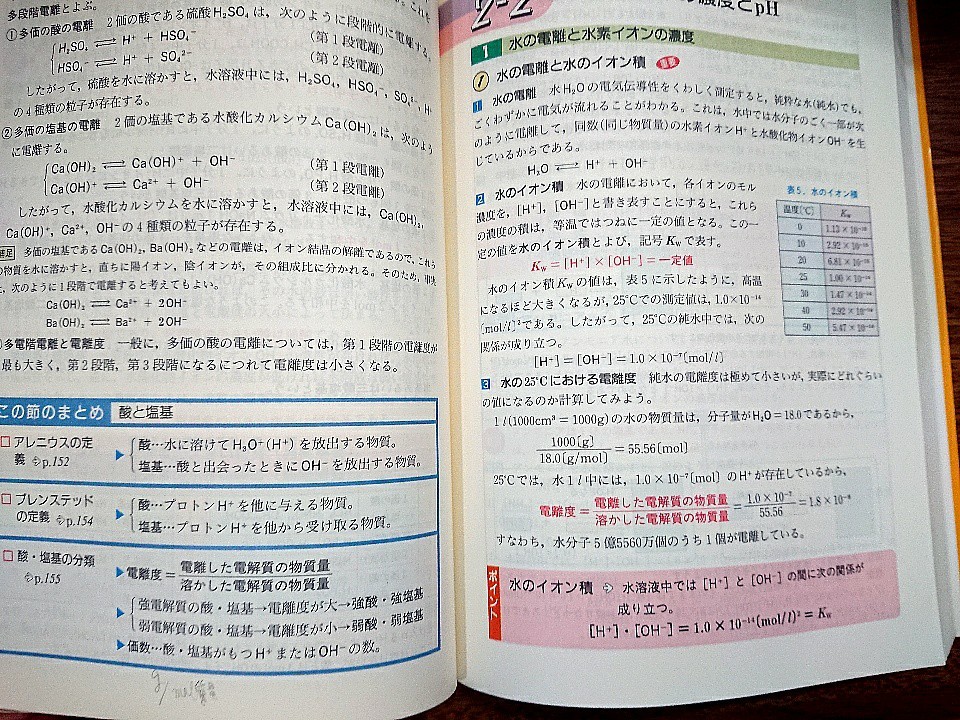 多段階電離とよぶ。
①多価の酸の電離 2価の酸である硫酸H₂SO₄は、次のように段階的に電離する。
H₂SO₄ ⇄ H⁺ + HSO₄⁻ (第1段電離)
HSO₄⁻ ⇄ H⁺ + SO₄²⁻ (第2段電離)
したがって、硫酸を水に溶かすと、水溶液中には、H₂SO₄, HSO₄⁻, SO₄²⁻, H⁺
の4種類の粒子が存在する。
②多価の塩基の電離 2価の塩基である水酸化カルシウムCa(OH)₂は、次のよう
に電離する。
Ca(OH)₂ ⇄ Ca(OH)⁺ + OH⁻ (第1段電離)
Ca(OH)⁺ ⇄ Ca²⁺ + OH⁻ (第2段電離)
したがって、水酸化カルシウムを水に溶かすと、水溶液中には、Ca(OH)₂,
Ca(OH)⁺, Ca²⁺, OH⁻の4種類の粒子が存在する。
多価の塩基であるCa(OH)₂, Ba(OH)₂などの電離は、イオン結晶の解離であるので、これら
の物質を水に溶かすと、直ちに陽イオン、陰イオンが、その組成比に分かれる。そのため、
次のように1段階で電離すると考えてもよい。
Ca(OH)₂ ⇄ Ca²⁺ + 2OH⁻
Ba(OH)₂ ⇄ Ba²⁺ + 2OH⁻
多電階電離と電離度 一般に、多価の酸の電離については、第1段階の電離度が
最も大きく、第2段階、第3段階になるにつれて電離度は小さくなる。
この節のまとめ 酸と塩基
□ アレニウスの定義 p.152
▶ 酸…水に溶けてH₃O⁺(H⁺)を放出する物質。
塩基…酸と出会ったときにOH⁻を放出する物質。
□ ブレンステッドの定義 p.154
▶ 酸…プロトンH⁺を他に与える物質。
塩基…プロトンH⁺を他から受け取る物質。
□ 酸・塩基の分類 p.155
▶電離度=電離した電解質の物質量/溶かした電解質の物質量
▶ 強電解質の酸・塩基→電離度が大→強酸・強塩基
弱電解質の酸・塩基→電離度が小→弱酸・弱塩基
▶価数…酸・塩基がもつH⁺またはOH⁻の数。
g/mol
2-2 濃度とpH
1 水の電離と水素イオンの濃度
① 水の電離と水のイオン積 重要
1 水の電離 水H₂Oの電気伝導性をくわしく測定すると、純粋な水(純水)でも、
ごくわずかに電気が流れることがわかる。これは、水中では水分子のごく一部が次
のように電離して、同数(同じ物質量)の水素イオンH⁺と水酸化物イオンOH⁻を生
じているからである。
H₂O ⇄ H⁺ + OH⁻
2 水のイオン積 水の電離において、各イオンのモル
濃度を、[H⁺], [OH⁻]と書き表すことにすると、これら
の濃度の積は、等温ではつねに一定の値となる。この一
定の値を水のイオン積とよび、記号Kwで表す。
Kw=[H⁺]×[OH⁻]=一定値
水のイオン積Kwの値は、表5に示したように、高温
になるほど大きくなるが、25℃での測定値は、1.0×10⁻¹⁴
(mol/l)²である。したがって、25℃の純水中では、次の
関係が成り立つ。
[H⁺]=[OH⁻]=1.0×10⁻⁷(mol/l)
表5. 水のイオン積
温度[℃] Kw
0 1.13×10⁻¹⁵
10 2.92×10⁻¹⁵
20 6.81×10⁻¹⁵
25 1.00×10⁻¹⁴
30 1.47×10⁻¹⁴
40 2.92×10⁻¹⁴
50 5.47×10⁻¹⁴
3 水の25℃における電離度 純水の電離度は極めて小さいが、実際にどれぐらい
の値になるのか計算してみよう。
1l(1000cm³=1000g)の水の物質量は、分子量がH₂O=18.0であるから、
1000[g]/18.0[g/mol]=55.56[mol]
25℃では、水1l中には、1.0×10⁻⁷(mol)のH⁺が存在しているから、
電離度=電離した電解質の物質量/溶かした電解質の物質量=1.0×10⁻⁷/55.56=1.8×10⁻⁹
すなわち、水分子5億5560万個のうち1個が電離している。
ポイント
水のイオン積 ⇨ 水溶液中では[H⁺]と[OH⁻]の間に次の関係が
成り立つ。
[H⁺]・[OH⁻]=1.0×10⁻¹⁴(mol/l)²=Kw